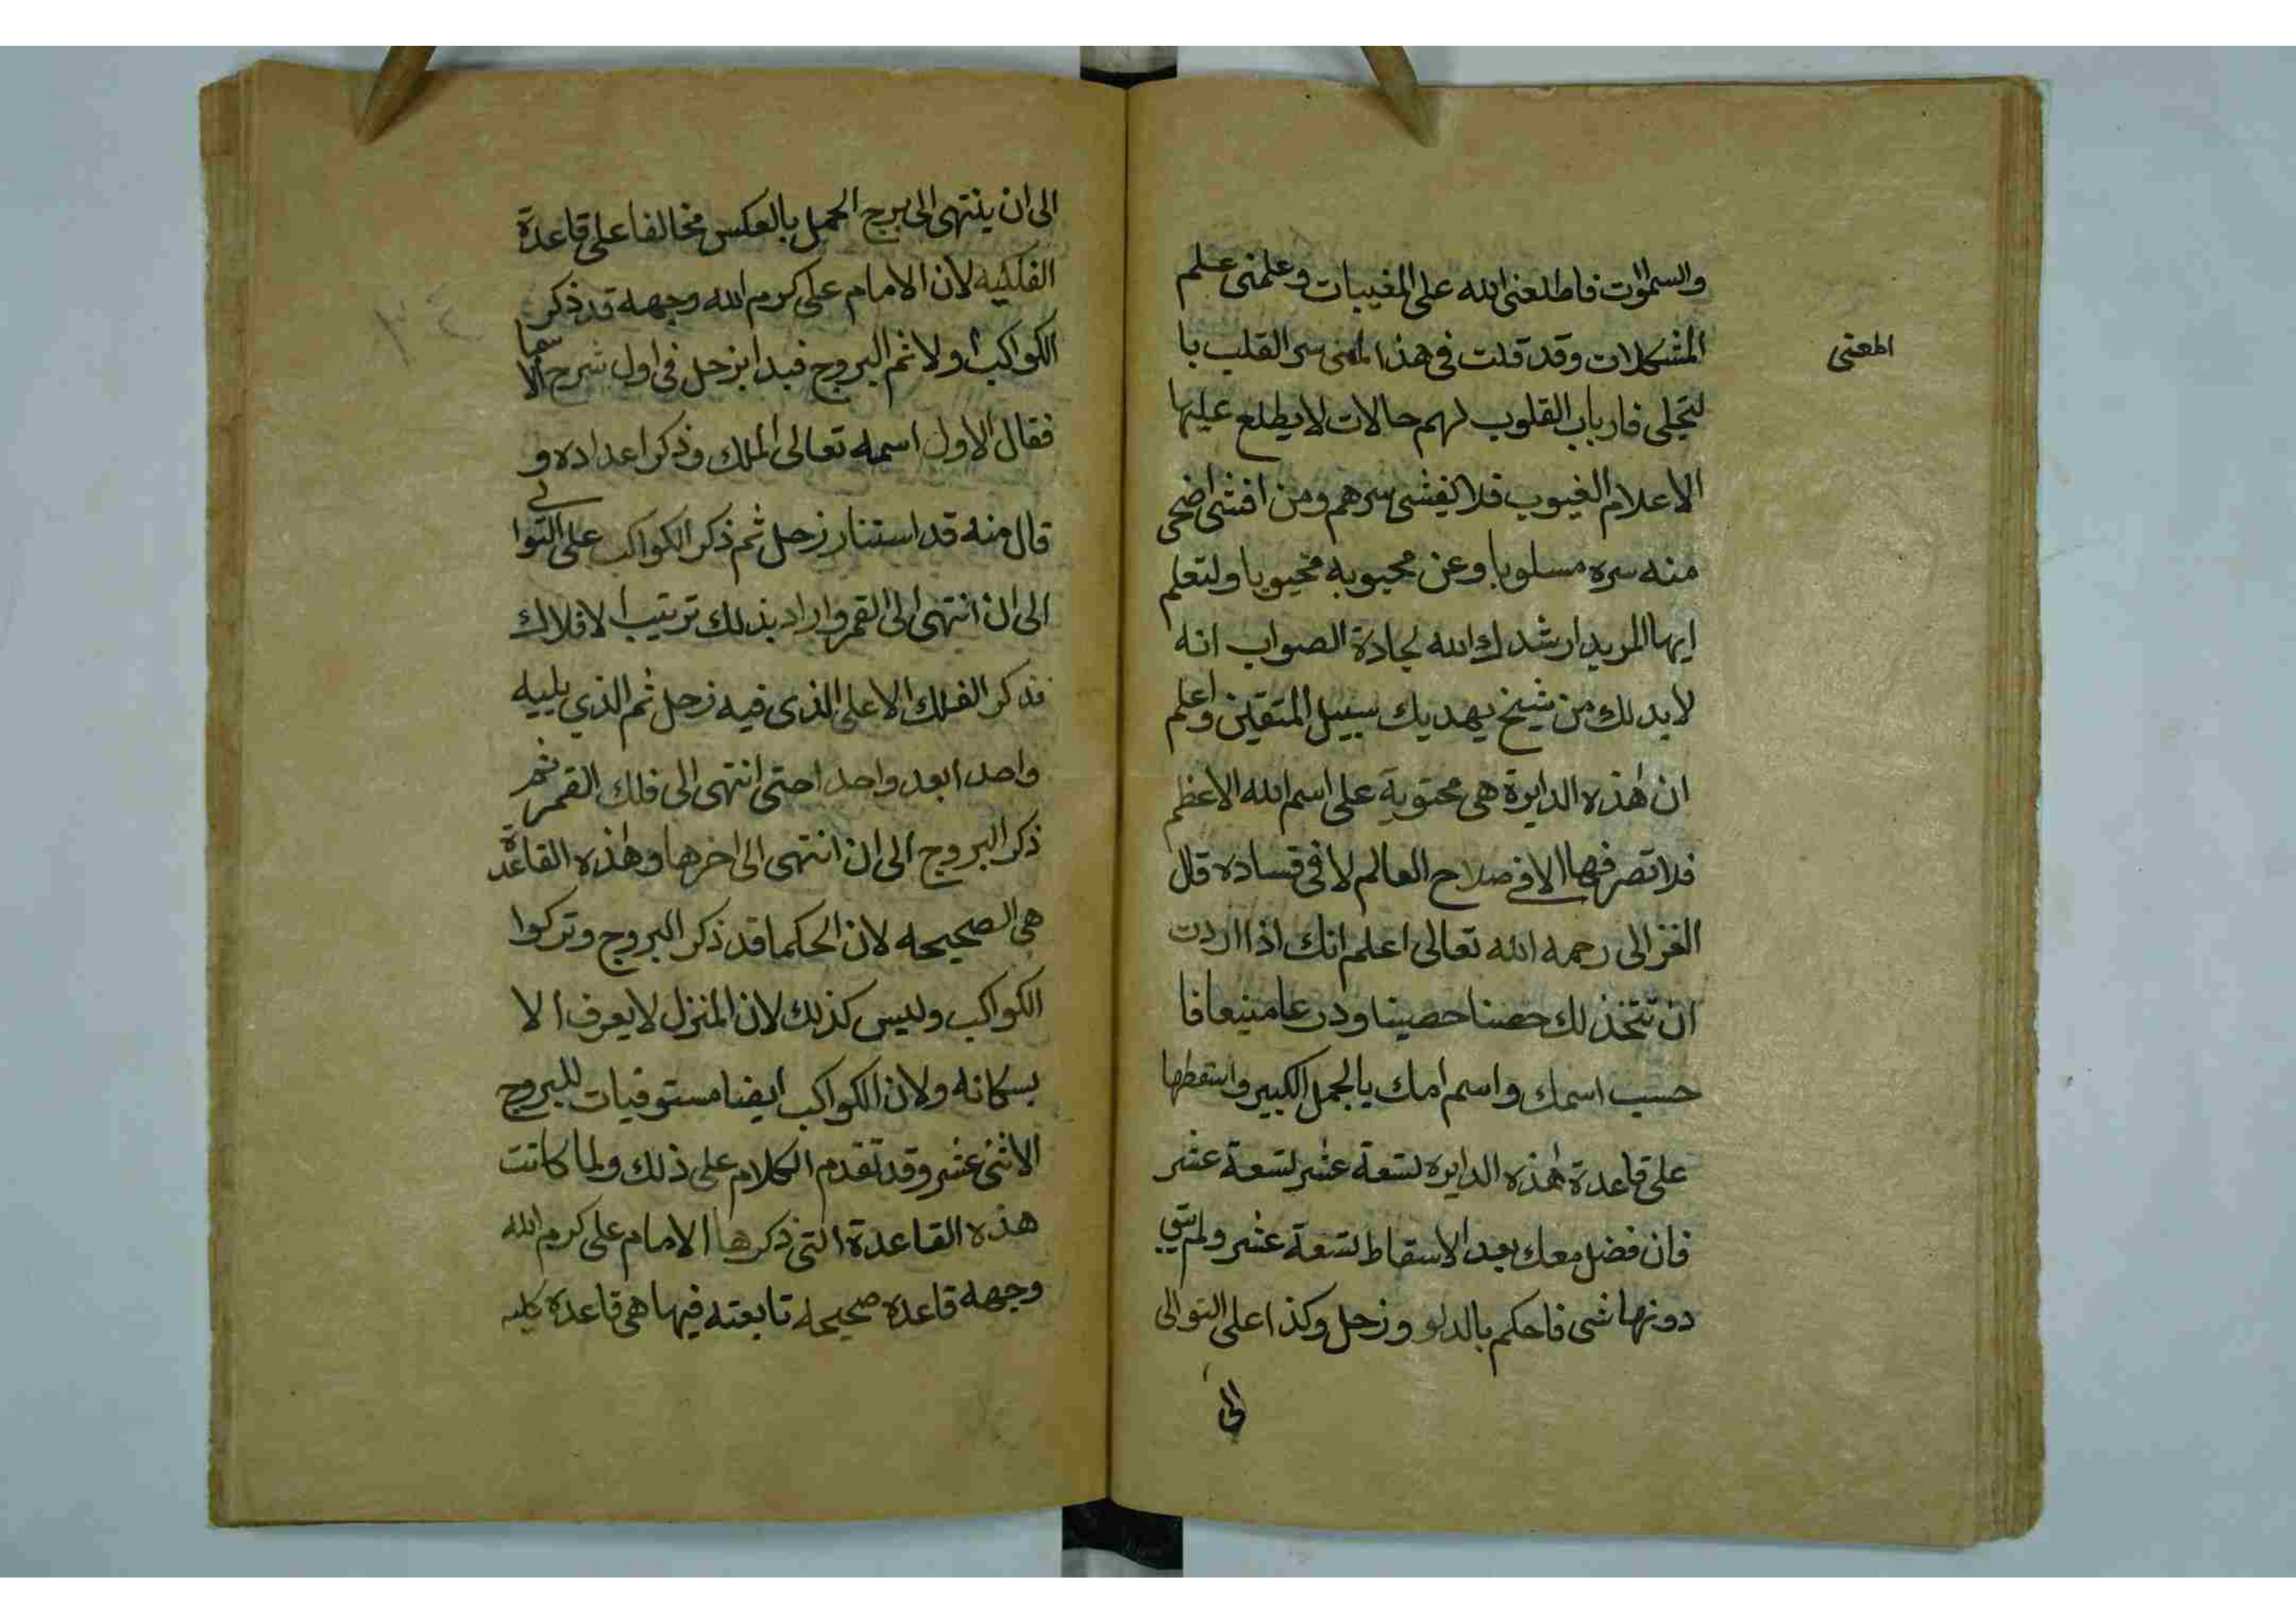 والسموات فاطلعني الله على المغيبات وعلمني علم
المشكلات وقد قلت في هذا المعنى سر القلب با
المعنى
لتجلى فارباب القلوب لهم حالات لا يطلع عليها
الاعلام الغيوب فلا يفشى سرهم ومن افشى اضحى
منه سره مسلوبا وعن محبوبه محجوبا ولتعلم
ايها المريد ارشدك الله لجادة الصواب انه
لابد لك من شيخ يهديك سبيل المتقين واعلم
ان هذه الدايرة هي محتوية على اسم الله الاعظم
فلا تصرفها الا في صلاح العالم لا في فساده قال
الغزالى رحمه الله تعالى اعلم انك اذا اردت
ان تتخذ لك حصنا حصينا ودرعا منيعا فا
حسب اسمك واسم امك بالجمل الكبير واسقطها
على قاعدة هذه الدايره تسعة عشر تسعة عشر
فان فضل معك بعد الاسقاط تسعة عشر ولم يبق
دونها شى فاحكم بالدلو وزحل وكذا على التوالى
الى
الى ان ينتهى الى برج الحمل بالعكس مخالفا على قاعدة
الفلكيه لان الامام على كرم الله وجهه قد ذكر
الكواكب اولا ثم البروج فبدا بزحل فى اول شرح الاسما
فقال الاول اسمه تعالى الملك وذكر اعداده و
قال منه قد استنار زحل ثم ذكر الكواكب على التوالي
الى ان انتهى الى القمر واراد بذلك ترتيب الافلاك
فذكر الفلك الاعلى الذى فيه زحل ثم الذي يليه
واحدا بعد واحد احتى انتهى الى فلك القمر ثم
ذكر البروج الى ان انتهى الى اخرها وهذه القاعدة
هي الصحيحه لان الحكما قد ذكر البروج وتركوا
الكواكب وليس كذلك لان المنزل لا يعرف الا
بسكانه ولان الكواكب ايضا مستوفيات للبروج
الاثنى عشر وقد تقدم الكلام على ذلك ولما كانت
هذه القاعدة التى ذكرها الامام على كرم الله
وجهه قاعدة صحيحه تابعته فيها هى قاعدة كليه